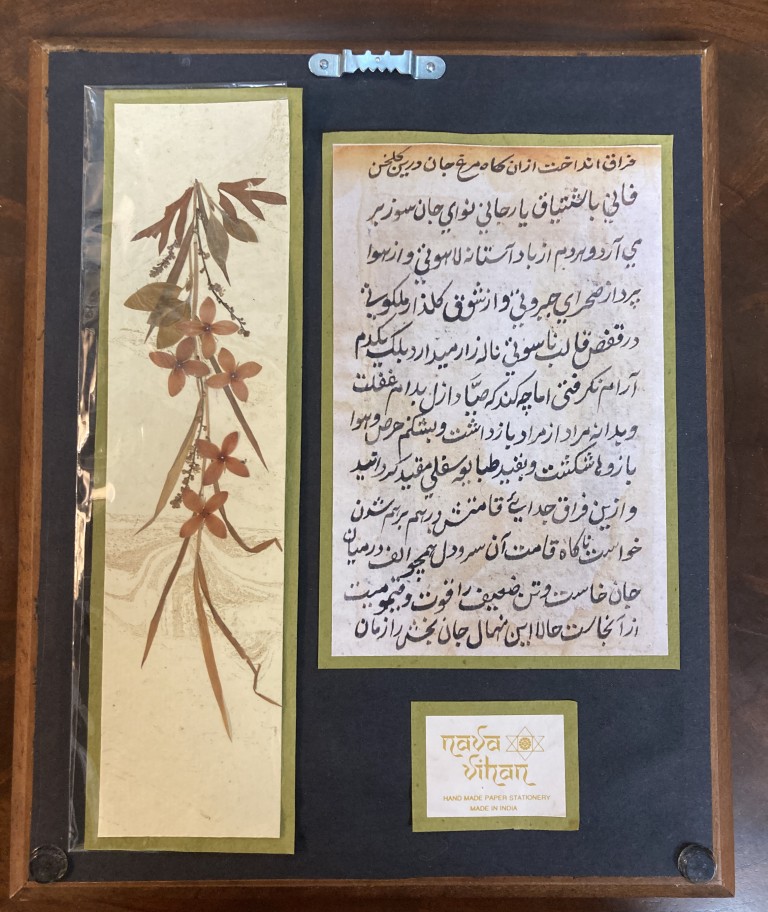 فراق انداخت ازان کاه مرغ جان درین کلخن
فانی باشتیاق یار جانی نوای جان سوز بر
می آرد و هردم از باد آستانه لاهوتی و از هوا
صحرای جبروتی و از شوق کلذار ملکوتی
در قفص قالب ناسوتی ناله زار میدارد بلک یکدم
آرام نکرفتی اما چه کند که صیاد ازل بدام غفلت
و بدانه مراد از مراد بازداشت و بشکنم حرص و هوا
بازوها شکست و بقید طبایع سفلی مقید کردانید
و ازین فراق جدایی قامتش درهم برهم شدن
خواست ناکاه قامت آن سرو دل همچو الف درمیان
جان خاست و تن ضعیف را قوت و
از آنجاست حالا این نهال جان بخش را از مان
nava
vihan
HAND MADE PAPER STATIONERY
MADE IN INDIA